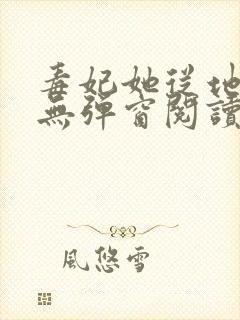 毒妃她從地
無彈窗閱讀
風悠雪